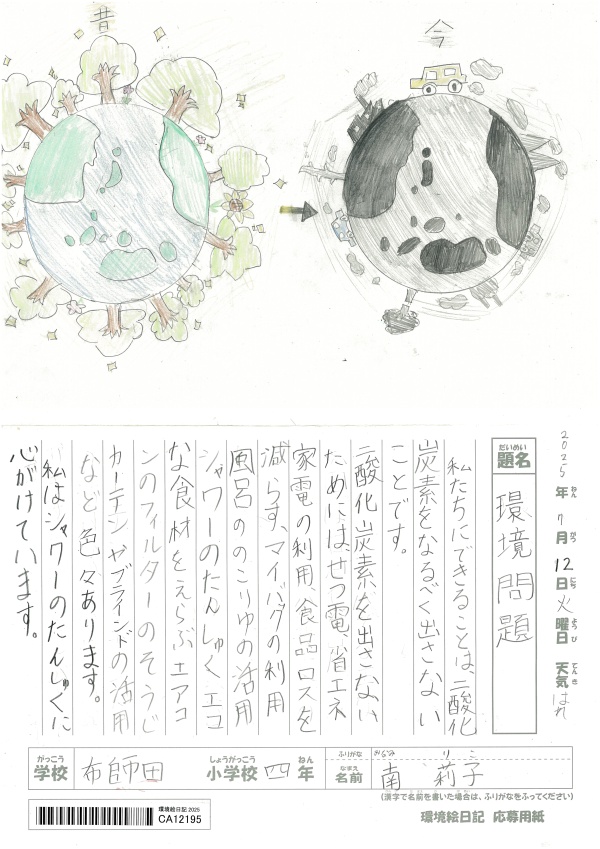 昔
今
2025年ねん7月がつ12日にち火曜日ようび 天気てんきはれ
だいめい
題名
環境問題
私たちにできることは、二酸化
炭素をなるべく出さない
ことです。
二酸化炭素を出さない
ためには、せつ電、省エネ
家電の利用、食品ロスを
減らす、マイバッグの利用
風呂ののこりゆの活用
シャワーのたんしゅくエコ
な食材をえらぶエアコ
ンのフィルターのそうじ
カーテンやブラインドの活用
など色々あります。
私はシャワーのたんしゅくに
心がけています。
がっこう しょうがっこう ねん ふりがな みなみ りこ
学校 布師田 小学校 四年 なまえ 名前 南 莉子
(漢字で名前を書いた場合は、ふりがなをふってください)
環境絵日記 応募用紙
環境絵日記 2025
CA12195